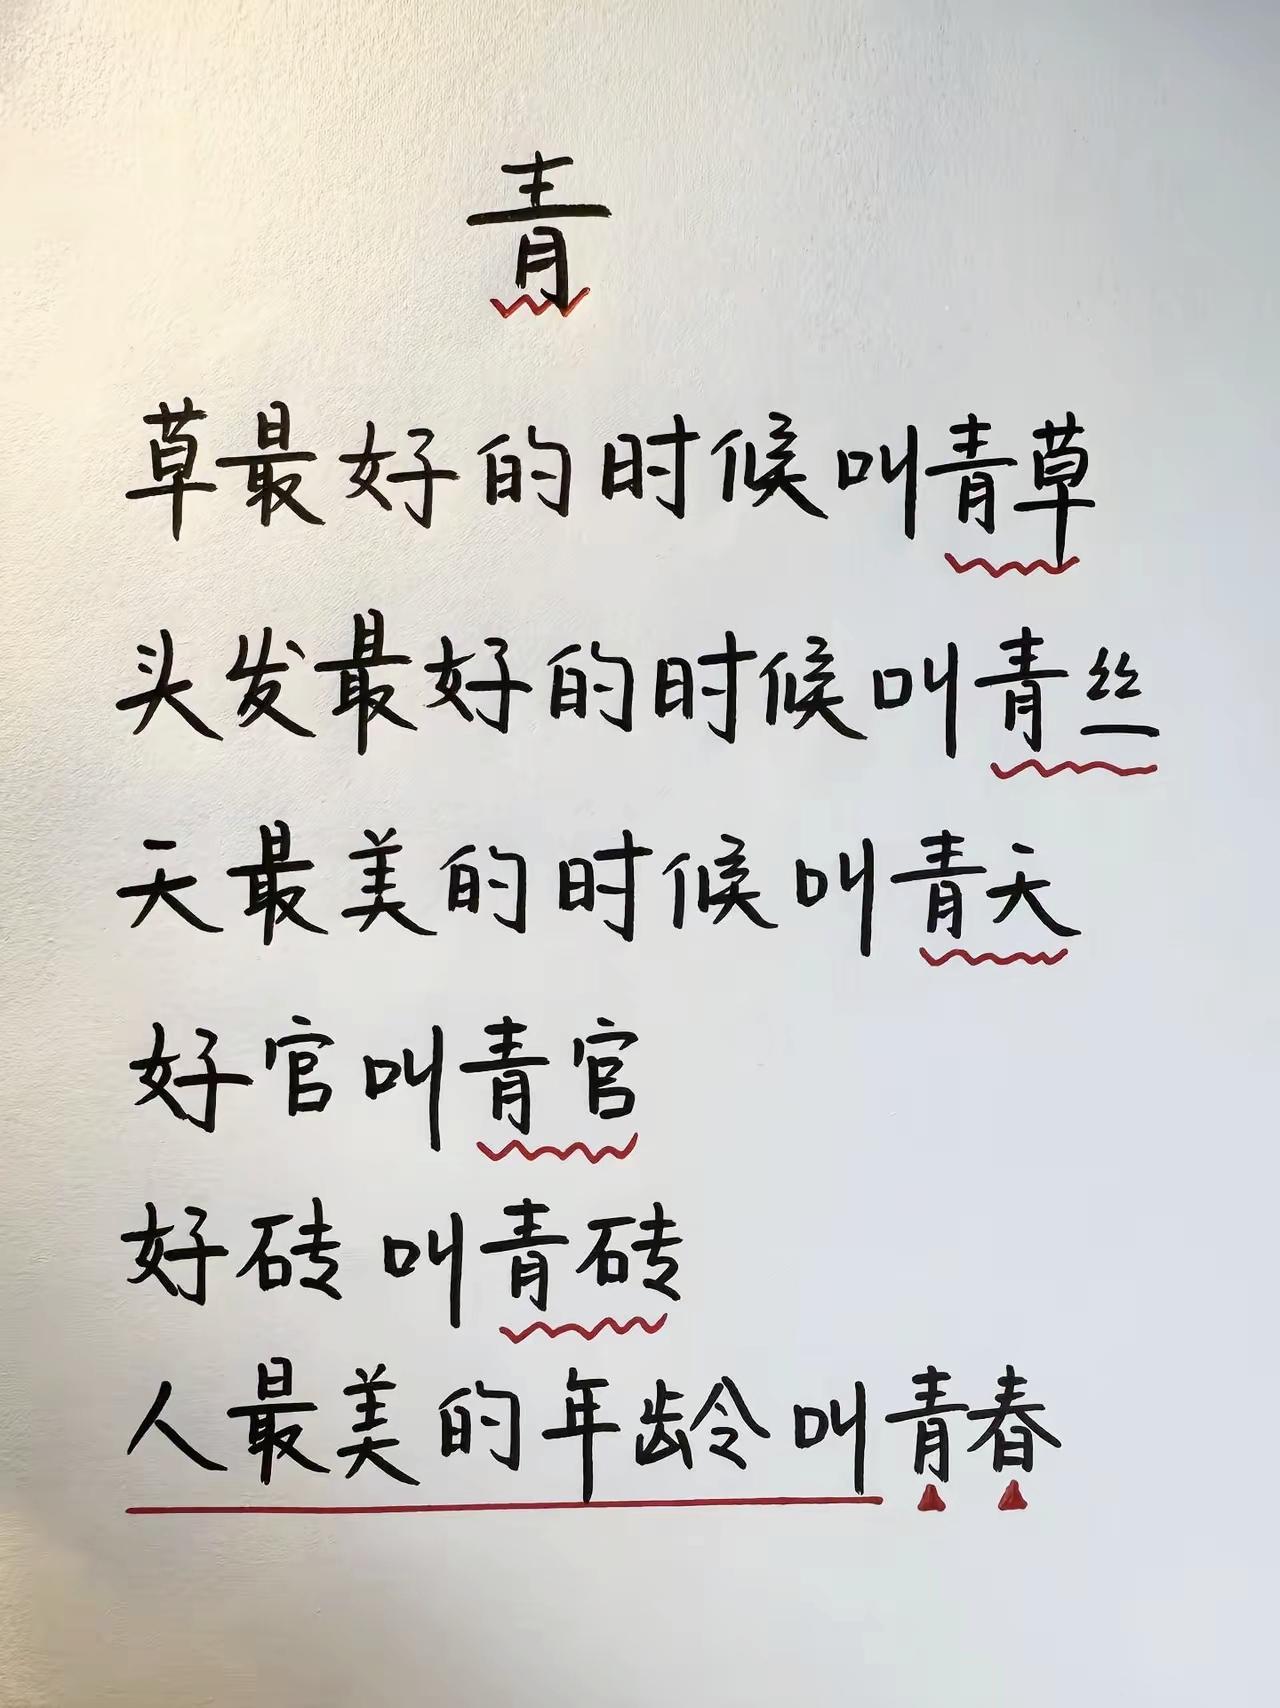 青
草最好的时候叫青草
头发最好的时候叫青丝
天最美的时候叫青天
好官叫青官
好砖叫青砖
人最美的年龄叫青春